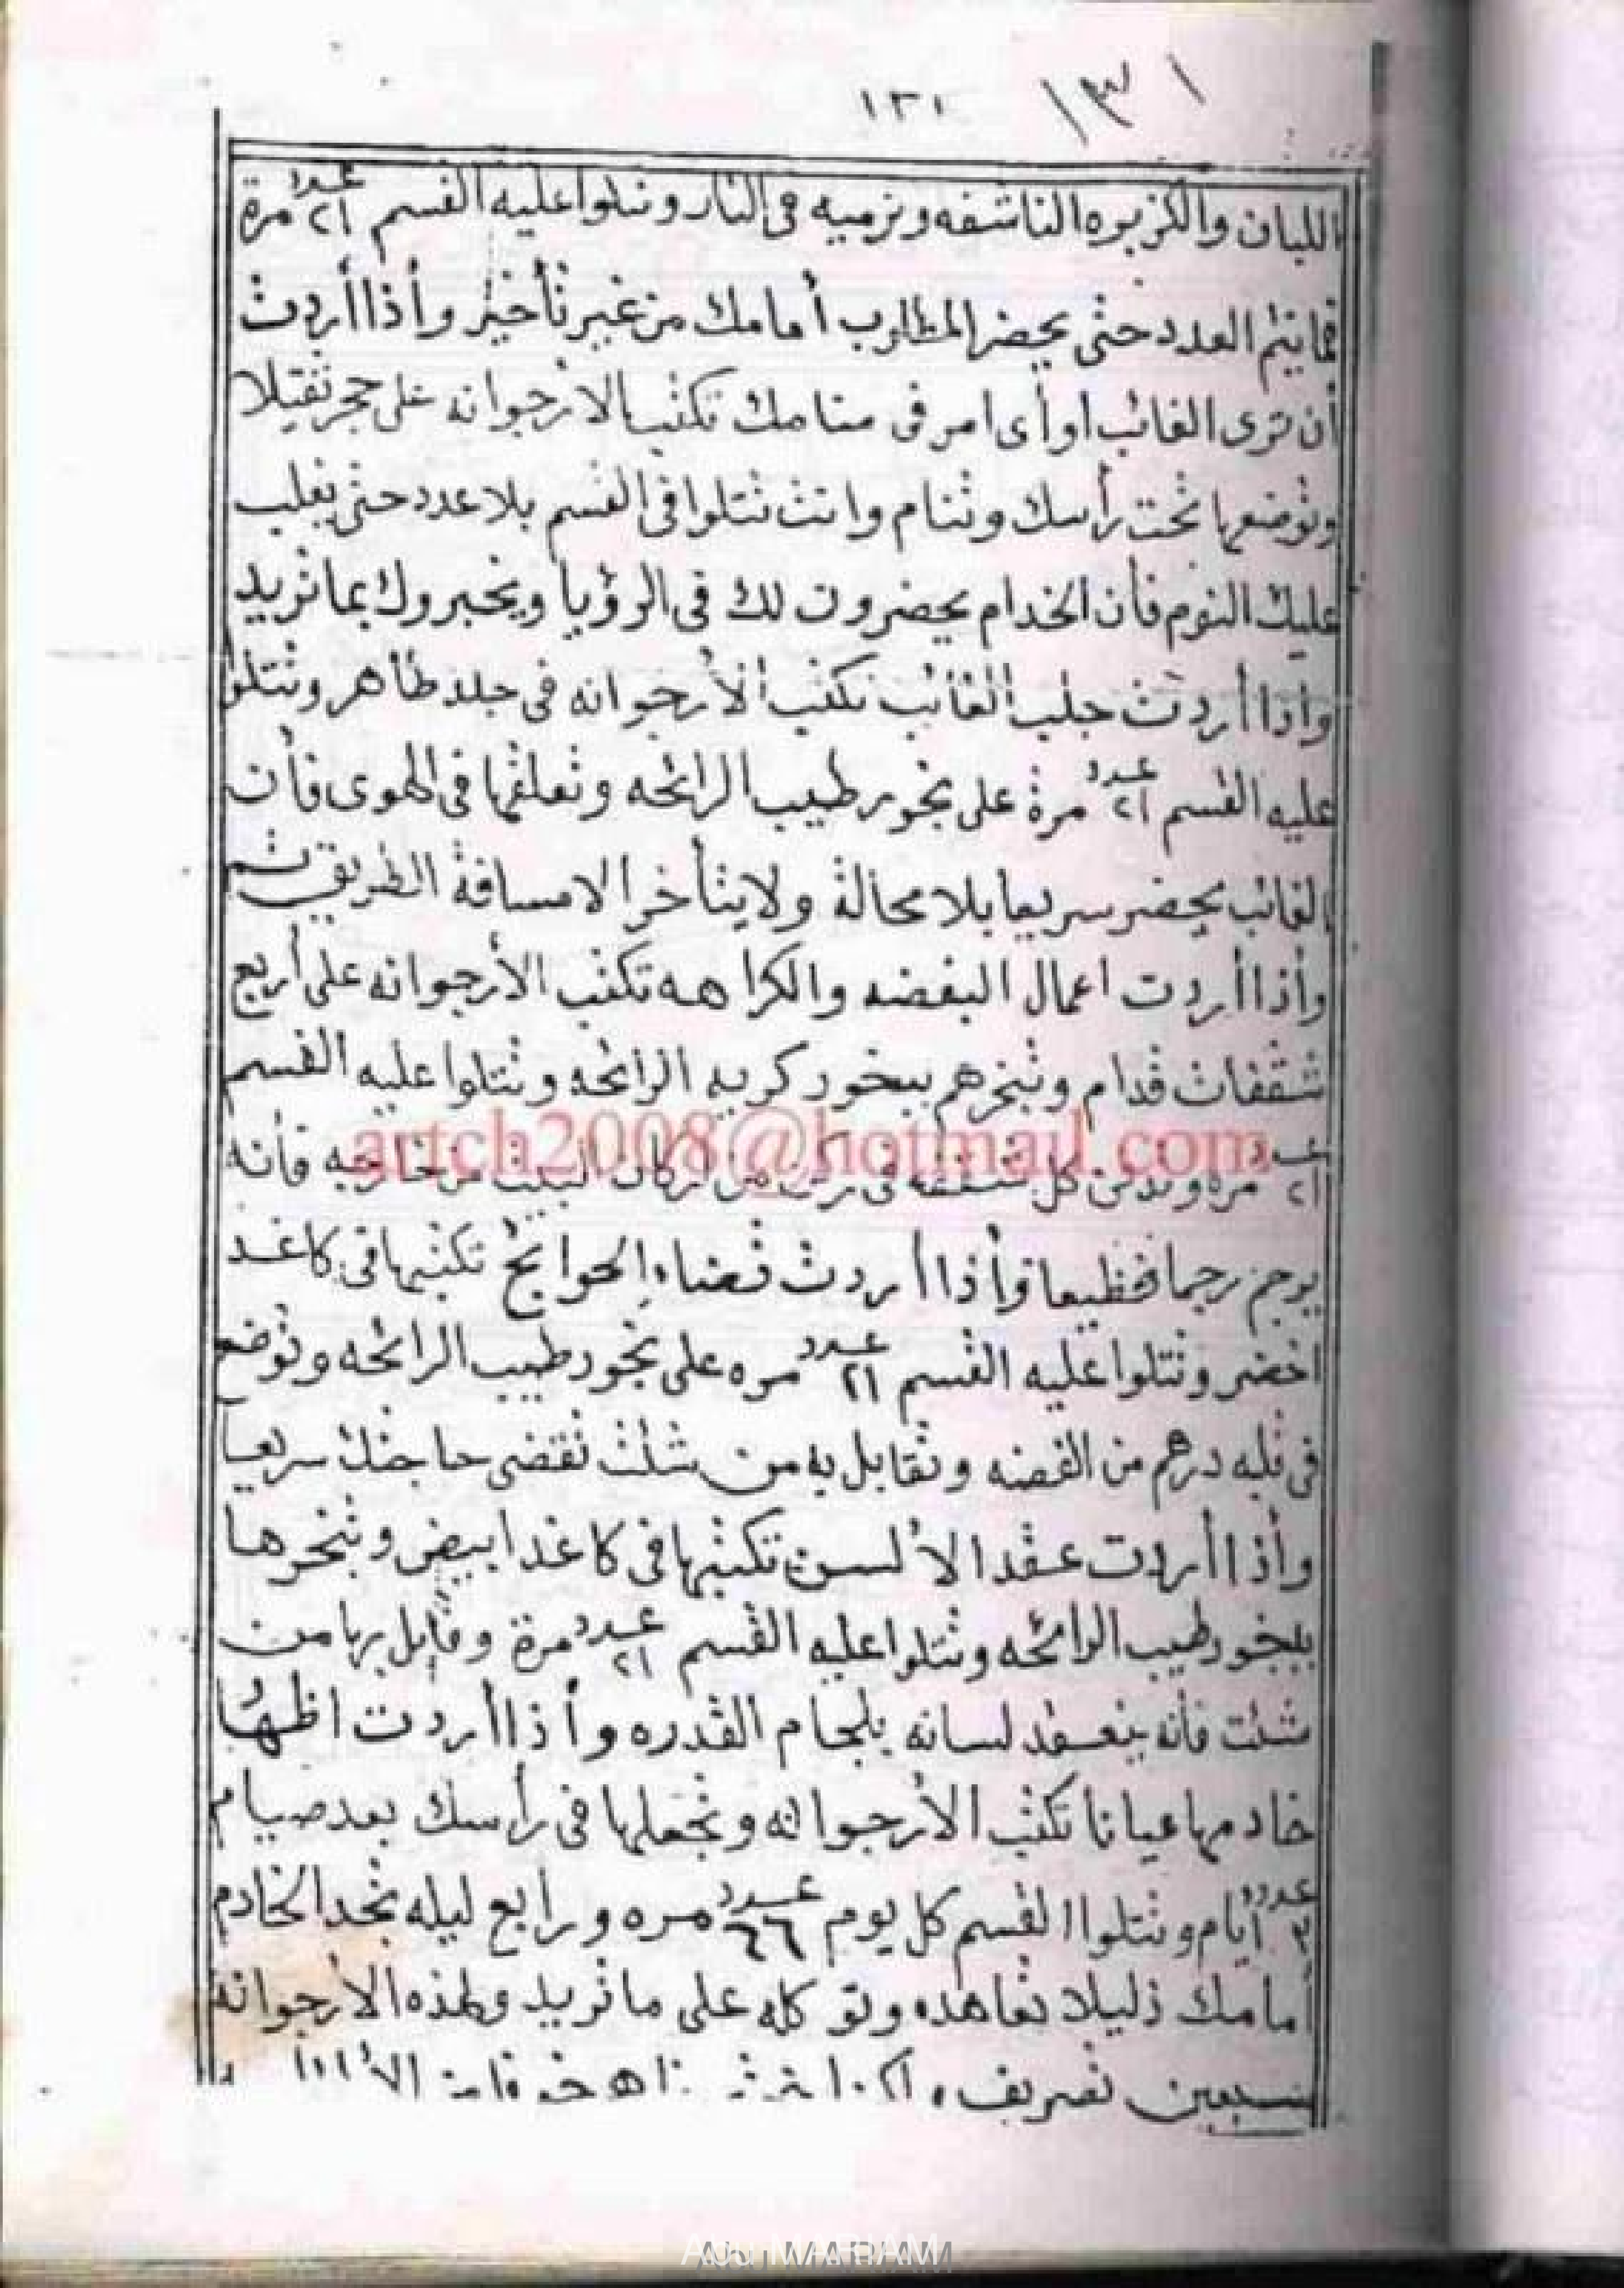 ١٣١ ١٣١
اللبان والكزبره الناشفه وترميه فى النار وتتلوا عليه القسم عدد ٢١ مرة
فما يتم العدد حتى يحضر المطلوب أمامك من غير تأخير وأذا أردت
أن ترى الغائب او أى امر فى منامك تكتب الارجوانه على حجر ثقيلا
وتوضعها تحت رأسك وتنام وانت تتلوا فى القسم بلا عدد حتى يغلب
عليك النوم فأن الخدام يحضرون لك فى الرؤيا ويخبروك بما تريد
واذا أردت جلب الغائب تكتب الأرجوانه فى جلد طاهر وتتلوا
عليه القسم عدد ٢١ مرة على بخور طيب الرائحه وتعلقها فى الهوى فأن
الغائب يحضر سريعا بلا محالة ولا يتأخر الا مسافة الطريق ثم
وأذا أردت اعمال البغضه والكراهه تكتب الأرجوانه على أربع
شقفات قدام وتبخرهم ببخور كريه الرائحه وتتلوا عليه القسم
عدد ٢١ مره وتدفن كل شقفه فى ركن من اركان البيت من خارجه فأنه
artch2008@hotmail.com
يرجم رجما فظيعا وأذا أردت قضاء الحوايج تكتبها فى كاغد
اخضر وتتلوا عليه القسم عدد ٢١ مره على بخور طيب الرائحه وتوضع
فى قلبه درهم من الفضه وتقابل به من شئت تقضى حاجتك سريعا
وأذا أردت عقد الألسن تكتبها فى كاغد ابيض وتبخرها
ببخور طيب الرائحه وتتلوا عليه القسم عدد ٢١ مرة وقابل بها من
شئت فأنه ينعقد لسانه بلجام القدره وأذا أردت اظهار
خادمها عيانا تكتب الأرجوانه وتجعلها فى رأسك بعد صيام
عدد ٣ أيام وتتلوا القسم كل يوم عدد ٦٦ مره ورابع ليله تجد الخادم
أمامك ذليلا تعاهده وتوكله على ما تريد ولهذه الارجوانة
سبعين تصريف
Abu MARIAM